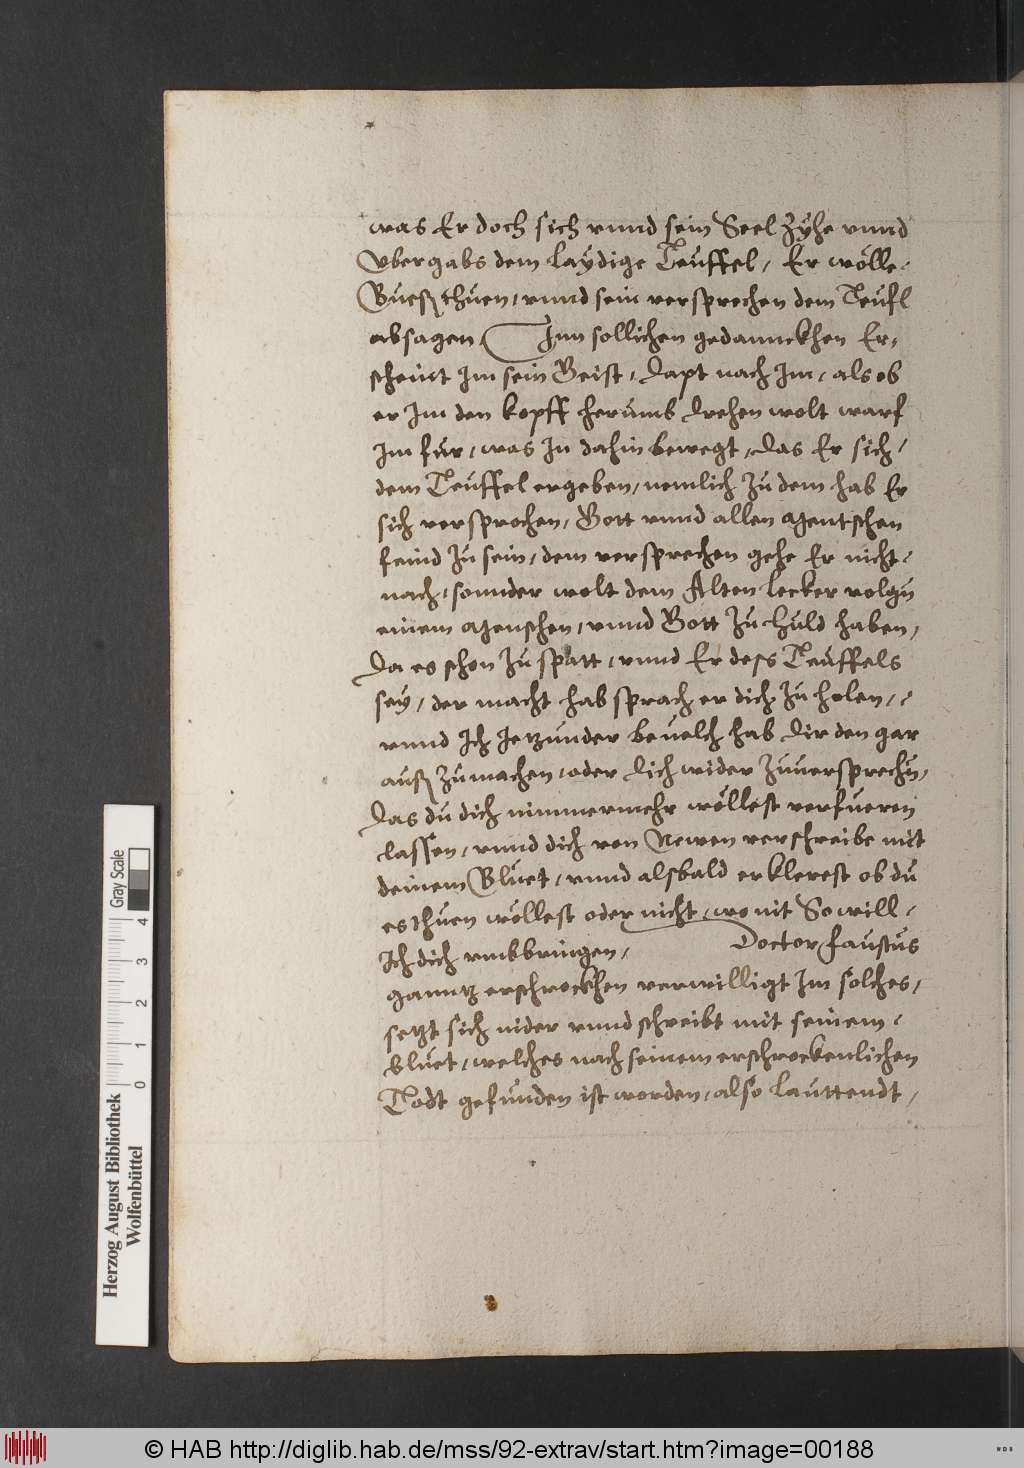 was Er doch sich vnnd sein Seel zyhe vnnd
Vbergabs dem laydige Teuffel, Er wölle
Bueß thuen, vnnd sein versprechen dem Teufl
absagen, Inn sollichen gedannckhen Er-
scheint Im sein Geist, dapt nach Im, als ob
er Im den kopff herumb drehen wolt warf
Im für, was In dahin bewegt, das Er sich
dem Teuffel ergeben, nemlich zu dem hab Er
sich versprochen, Gott vnnd allen Mentschen
feind zu sein, dem versprechen gehe Er nicht
nach, sonnder wolt dem Alten lecker volgn
einem Menschen, vnnd Gott zu huld haben,
Da es schon zu spatt, vnnd Er dess Teuffels
sey, der macht hab sprach er dich zu holen,
vnnd Ich Ietzunder beuelch hab dir den gar
auß zumachen, oder dich wider zuuersprechn,
Das du dich nimmermehr wöllest verfueren
lassen, vnnd dich von Newen verschreibe mit
deinem Bluet, vnnd alsbald erklerest ob du
es thuen wöllest oder nicht, wo nit So will
Ich dich vmbbringen, Doctor Faustus
ganntz erschrockhen verwilligt Im solches,
setzt sich nider vnnd schreibt mit seinem
bluet, welches nach seinem erschrockenlichen
Todt gefunden ist worden, also lauttendt,
Herzog August Bibliothek
Wolfenbüttel
Gray Scale
0 1 2 3 4
© HAB http://diglib.hab.de/mss/92-extrav/start.htm?image=00188